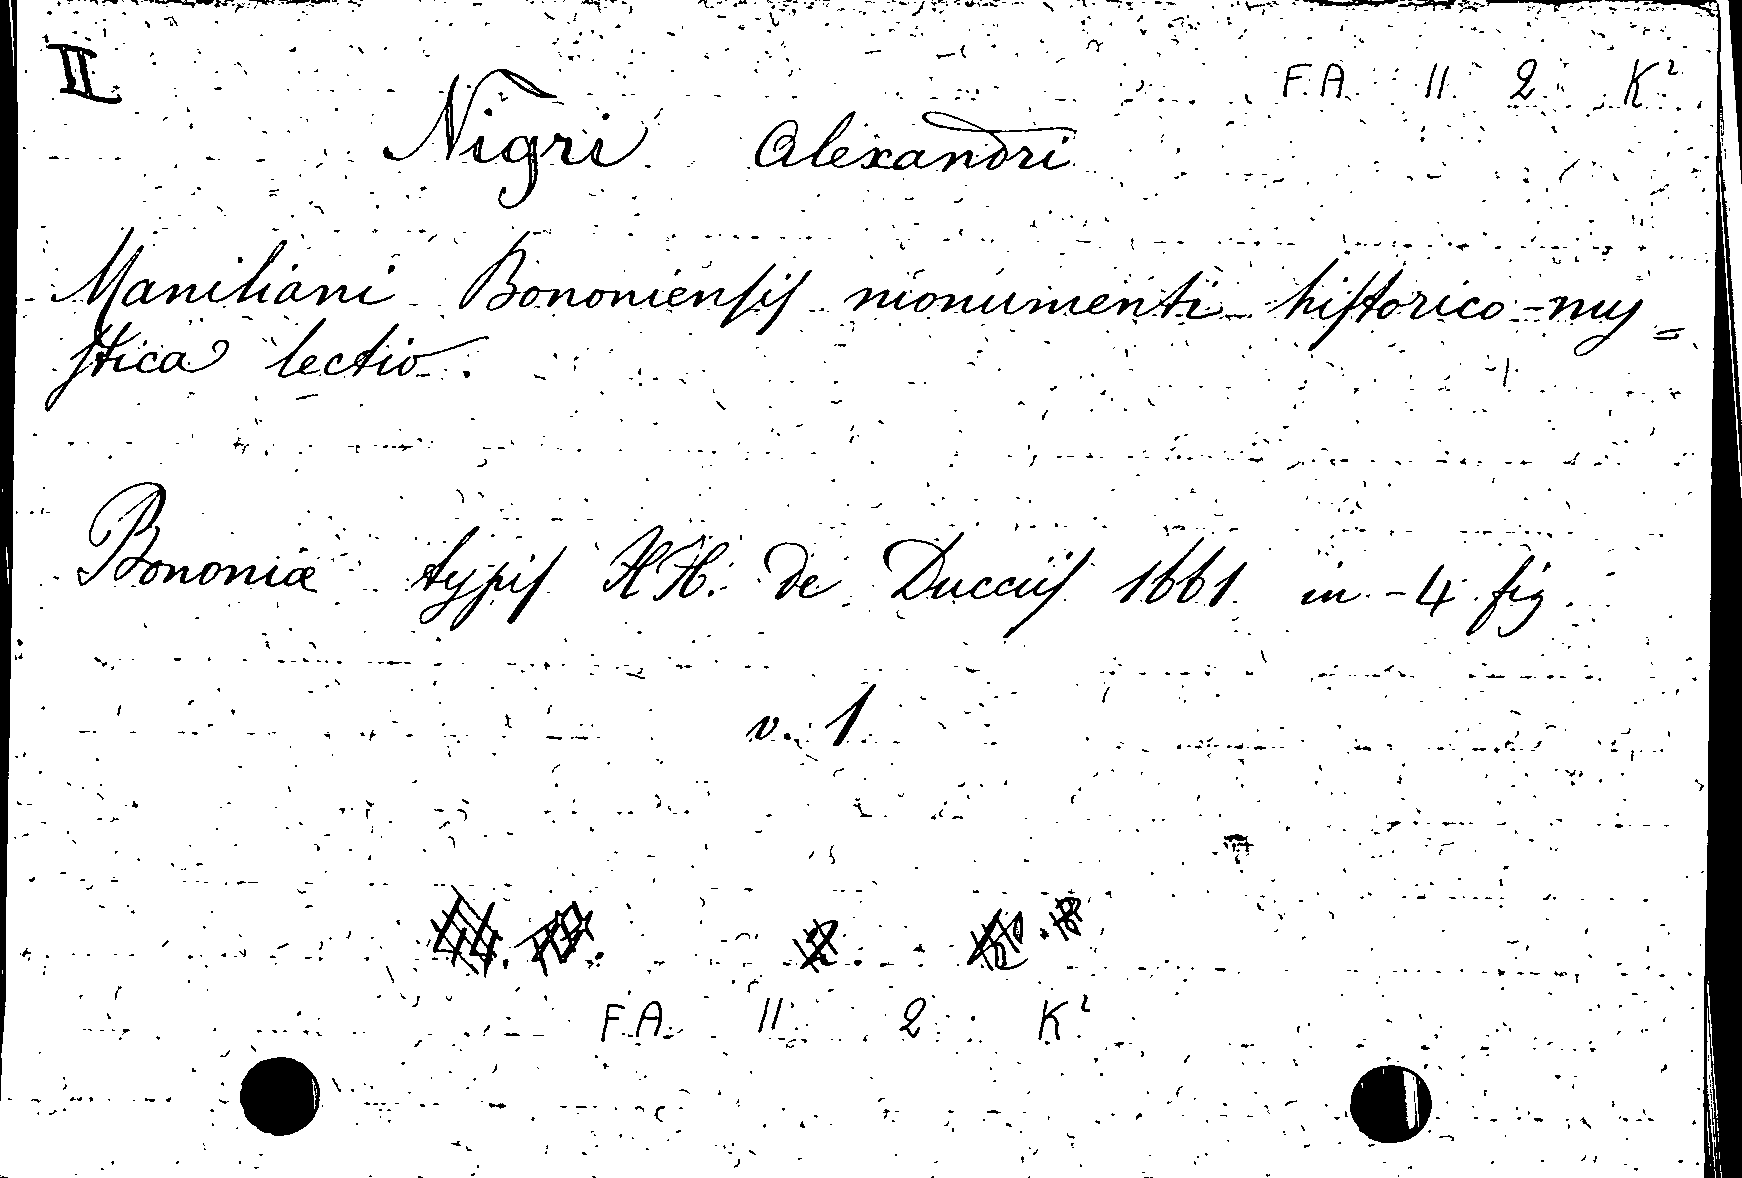 II
F.A. 11 2 K²
Nigri Alexandri
Maniliani Bononiensis monumenti historico-my=
stica lectio.
Bononiæ typis HH. de Ducciis 1661 in-4 fig
v. 1
F.A. 11 2 K²